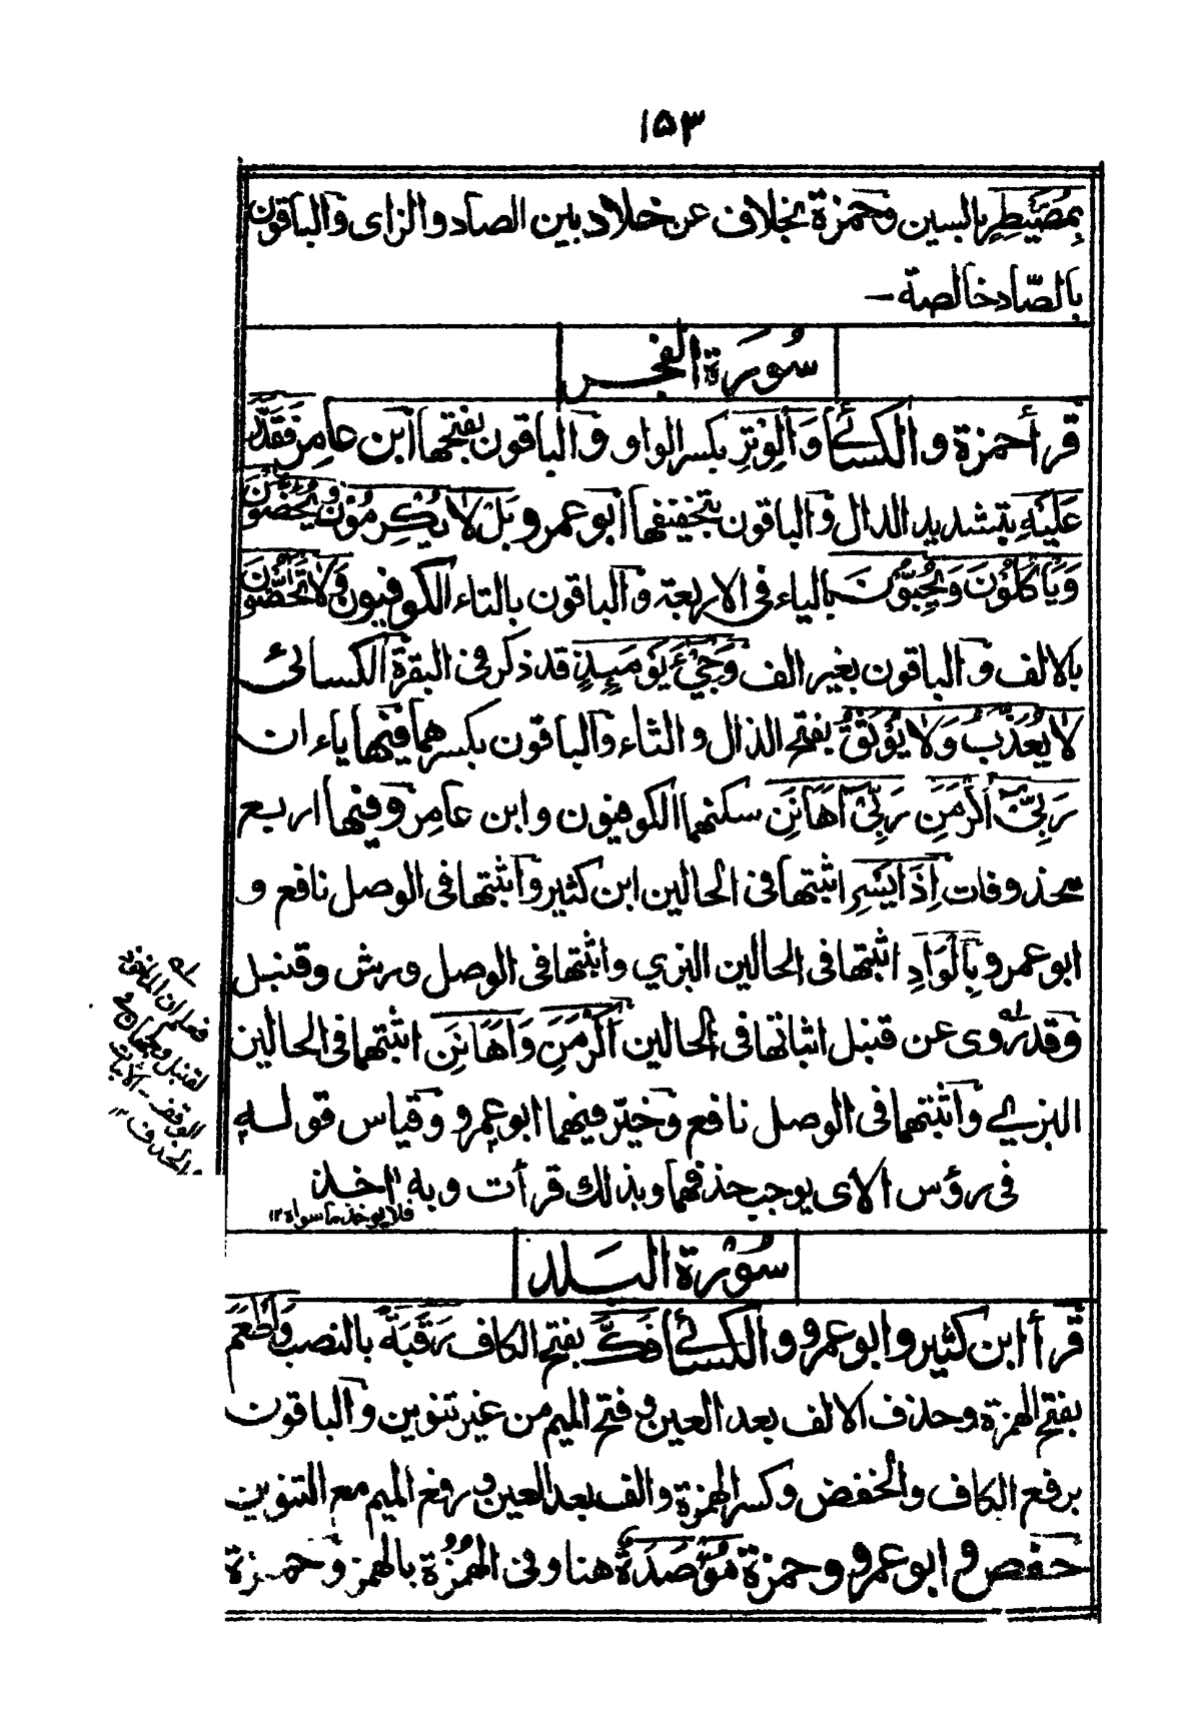 ١٥٣
بِمُصَيْطِرٍ بالسين وحمزة بخلاف عن خلاد بين الصاد والزاى والباقون
بالصّاد خالصة ــ
سُورَة الفجر
قرأ حمزة والكسائي وَالْوِتْرِ بكسر الواو والباقون بفتحها ابن عامر فَقَدَّرَ
عَلَيْهِ بتشديد الدال والباقون بتخفيفها ابو عمرو بَلْ لَا يُكْرِمُوْنَ وَيَحُضُّوْنَ
وَيَأْكُلُوْنَ وَيُحِبُّوْنَ بالياء فى الاربعة والباقون بالتاء الكوفيون وَلَا تَحَاضُّوْنَ
بالالف والباقون بغير الف وَجِيْءَ يَوْمَئِذٍ قد ذكر فى البقرة الكسائى
لَا يُعَذَّبُ وَلَا يُوْثَقُ بفتح الذال والثاء والباقون بكسرهما فيها ياءان
رَبِّيْ اَكْرَمَنِ رَبِّيْ اَهَانَنِ سكنهما الكوفيون وابن عامر وفيها اربع
محذوفات اِذَا يَسْرِ اثبتها فى الحالين ابن كثير واثبتها فى الوصل نافع و
ابو عمرو بِالْوَادِ اثبتها فى الحالين البزي واثبتها فى الوصل ورش وقنبل
وقد روى عن قنبل اثباتها فى الحالين اَكْرَمَنِ وَاَهَانَنِ اثبتهما فى الحالين
البزي واثبتهما فى الوصل نافع وخيّر فيهما ابو عمرو وقياس قوله
فى رؤس الاى يوجب حذفهما وبذلك قرأت وبه اخذ
فلا يوخذ ما سواه ١٢
له
فعلم ان الماخوذ
لقنبل وجهان في
الوقف ـ الاثبات
والحذف ١٢
سُوْرة البَلد
قرأ ابن كثير وابو عمرو والكسائي فَكَّ بفتح الكاف رَقَبَةً بالنصب وَاَطْعَمَ
بفتح الهمزة وحذف الالف بعد العين وفتح الميم من غير تنوين والباقون
برفع الكاف والخفض وكسر الهمزة والف بعد العين ورفع الميم مع التنوين
حفص وابو عمرو وحمزة مُؤْصَدَةٌ هنا وفى الهُمَزة بالهمز وحمزة